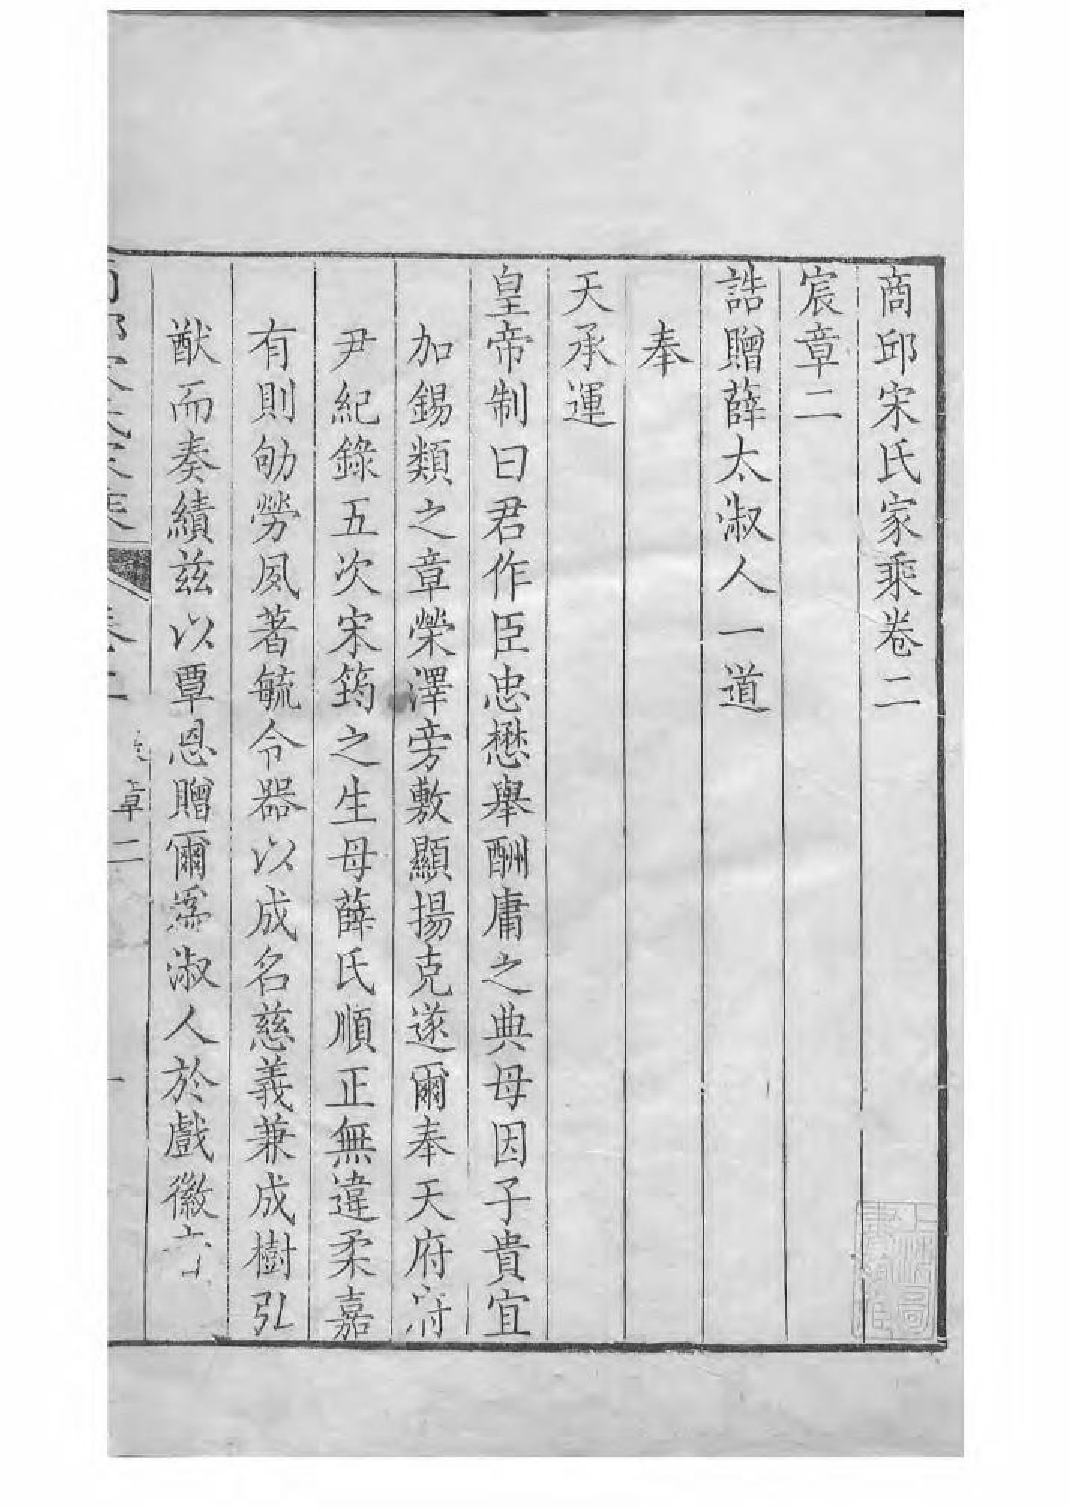 商邱宋氏家乘卷二
宸章二
誥贈薛太淑人一道
奉
天承運
皇帝制曰君作臣忠懋舉酬庸之典母因子貴宜
加錫類之章榮澤旁敷顯揚克遂爾奉天府府
尹紀錄五次宋筠之生母薛氏順正無違柔嘉
有則劬勞夙著毓令器以成名慈義兼成樹弘
猷而奏績茲以覃恩贈爾爲淑人於戲徽
商邱宋氏家乘 卷二 宸章二 一